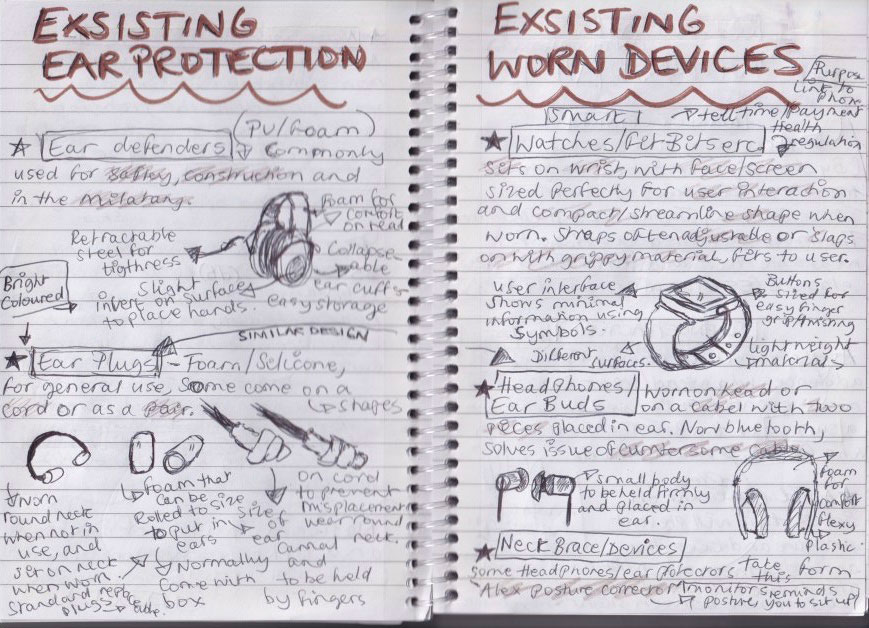 EXSISTING
EAR PROTECTION
(PU/Foam)
Ear defenders
commonly
used for saftey, construction and
in the milatary.
Foam for
comfort
on head
Retractable
steel for
tigthness
Collapse-
able
ear cuffs-
easy storage
Slight
invert on surface
to place hands.
Bright
Coloured
SIMILAR DESIGN
Ear Plugs - Foam/Selicone,
for general use, Some come on a
cord or as a pair.
shapes
Worn
round neck
when not in
use, and
set on neck
when worn
standard
plugs
Foam that
can be
Rolled to size
to put in
ears
Normally
come with
box
Size
of
ear
cannal
and
to be held
by fingers
on cord
to prevent
misplacement
wear round
neck.
EXSISTING
WORN DEVICES
Purpose
link to
phone
Smart
tell time/payment
Health
regulation
Watches/FitBits erc
sits on wrist, with face/screen
sized perfectly for user interaction
and compact/streamline shape when
worn. Straps often adjustable or slaps
on with grippy material, fits to user.
user interface
shows minimal
information using
symbols.
Buttons
sized for
easy finger
grip/pushing
Different
surfaces
lightweight
materials
Headphones/
Ear Buds
Worn on head or
on a cabel with two
pieces placed in ear. Now bluetooth,
solves issue of cumbersome cable
small body
to be held firmly
and placed in
ear.
Foam
for
comfort
flexy
plastic.
Neck Brace/Devices
some Headphones/ear protectors take this form
Alex Posture corrector
monitors
posture,
reminds
you to sit up!